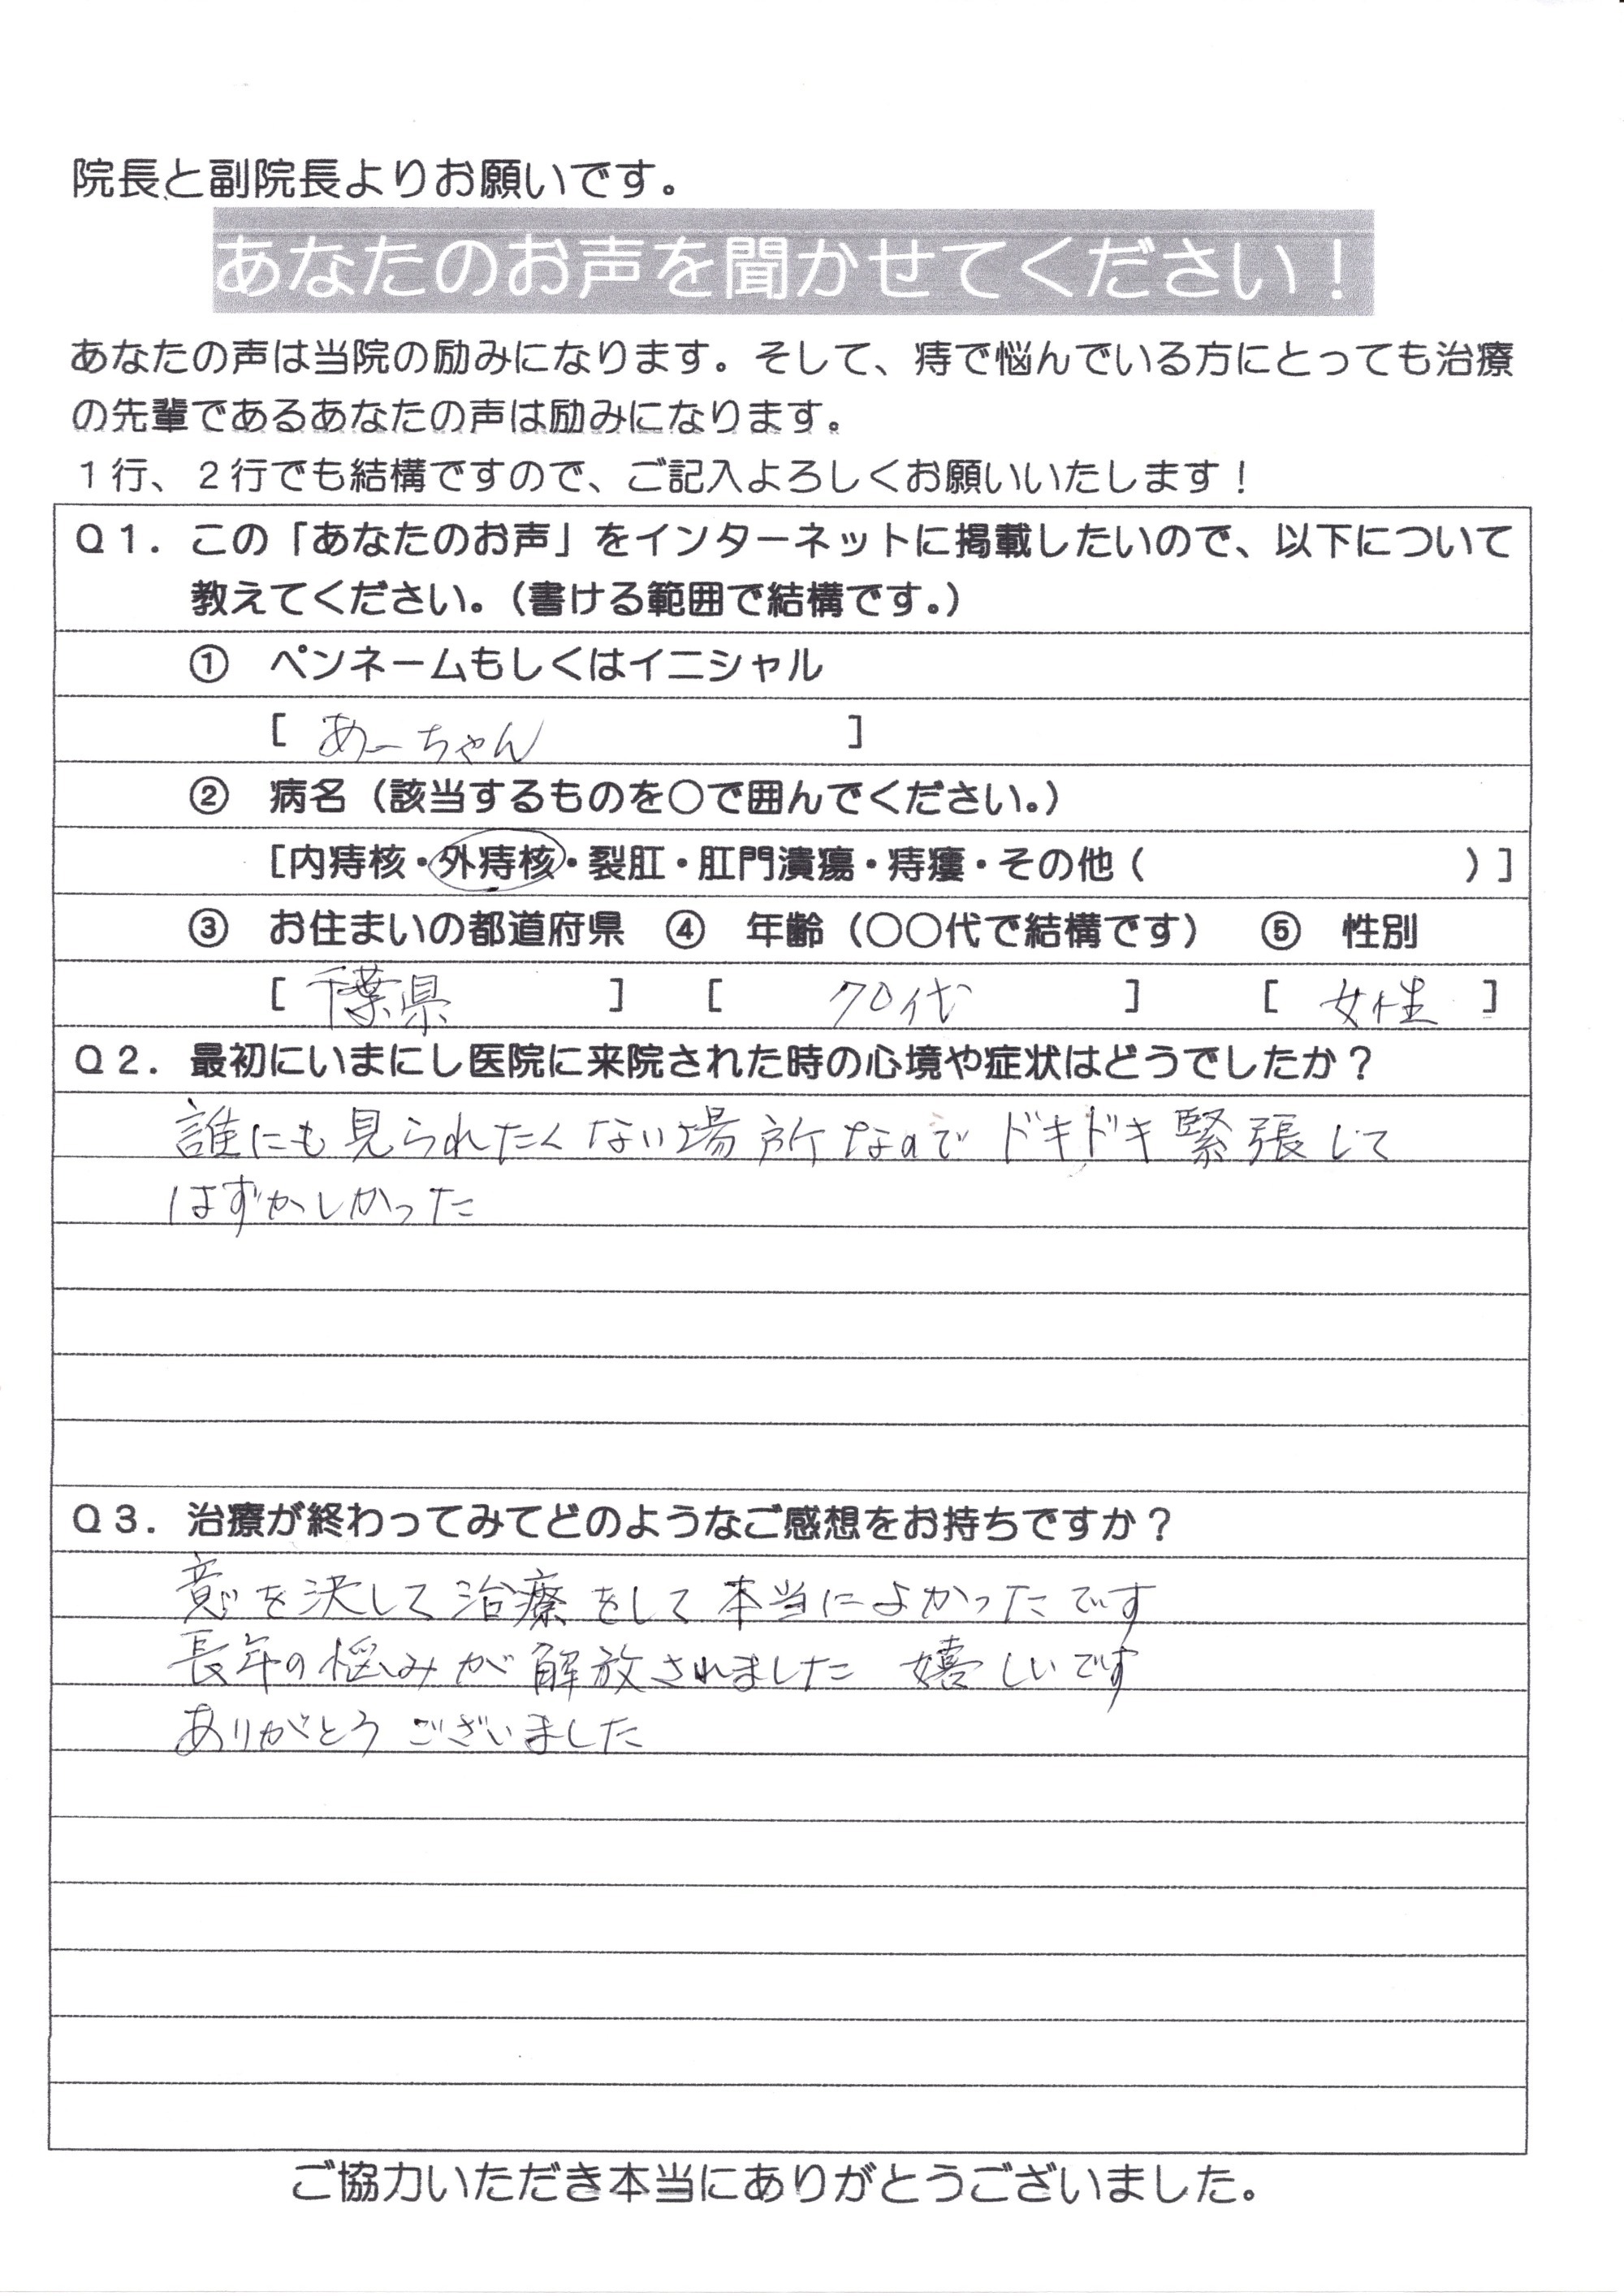 院長と副院長よりお願いです。
あなたのお声を聞かせてください！
あなたの声は当院の励みになります。そして、痔で悩んでいる方にとっても治療
の先輩であるあなたの声は励みになります。
１行、２行でも結構ですので、ご記入よろしくお願いいたします！
Ｑ１．この「あなたのお声」をインターネットに掲載したいので、以下について
教えてください。（書ける範囲で結構です。）
① ペンネームもしくはイニシャル
[ あーちゃん ]
② 病名（該当するものを○で囲んでください。）
[内痔核・外痔核・裂肛・肛門潰瘍・痔瘻・その他（ ）]
③ お住まいの都道府県 ④ 年齢（○○代で結構です） ⑤ 性別
[ 千葉県 ] [ 70代 ] [ 女性 ]
Ｑ２．最初にいまにし医院に来院された時の心境や症状はどうでしたか？
誰にも見られたくない場所なので ドキドキ緊張して
はずかしかった
Ｑ３．治療が終わってみてどのようなご感想をお持ちですか？
意を決して治療をして本当によかったです
長年の悩みが解放されました 嬉しいです
ありがとうございました
ご協力いただき本当にありがとうございました。